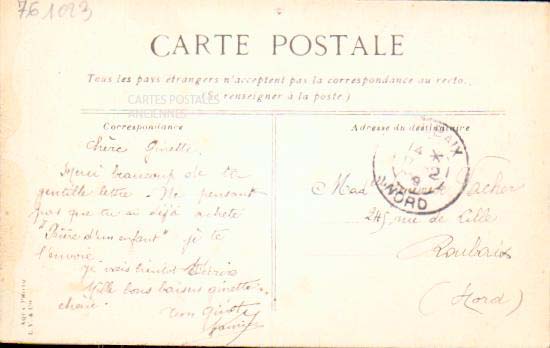 761023
CARTE POSTALE
Tous les pays étrangers n'acceptent pas la correspondance au recto.
(Se renseigner à la poste.)
CARTES POSTALES
ANCIENNES
Correspondance
Chère Ginette.
Merci beaucoup de ta
gentille lettre. Ne pensant
pas que tu ai déjà acheté
"Prière d'un enfant" je te
l'envoie
je vais bientot
Mille bons baisers ginette
chérie.
ton
Adresse du destinataire
BAIX
14
21
NORD
Mad Vacher
245, rue de Lille
Roubaix
(Nord)